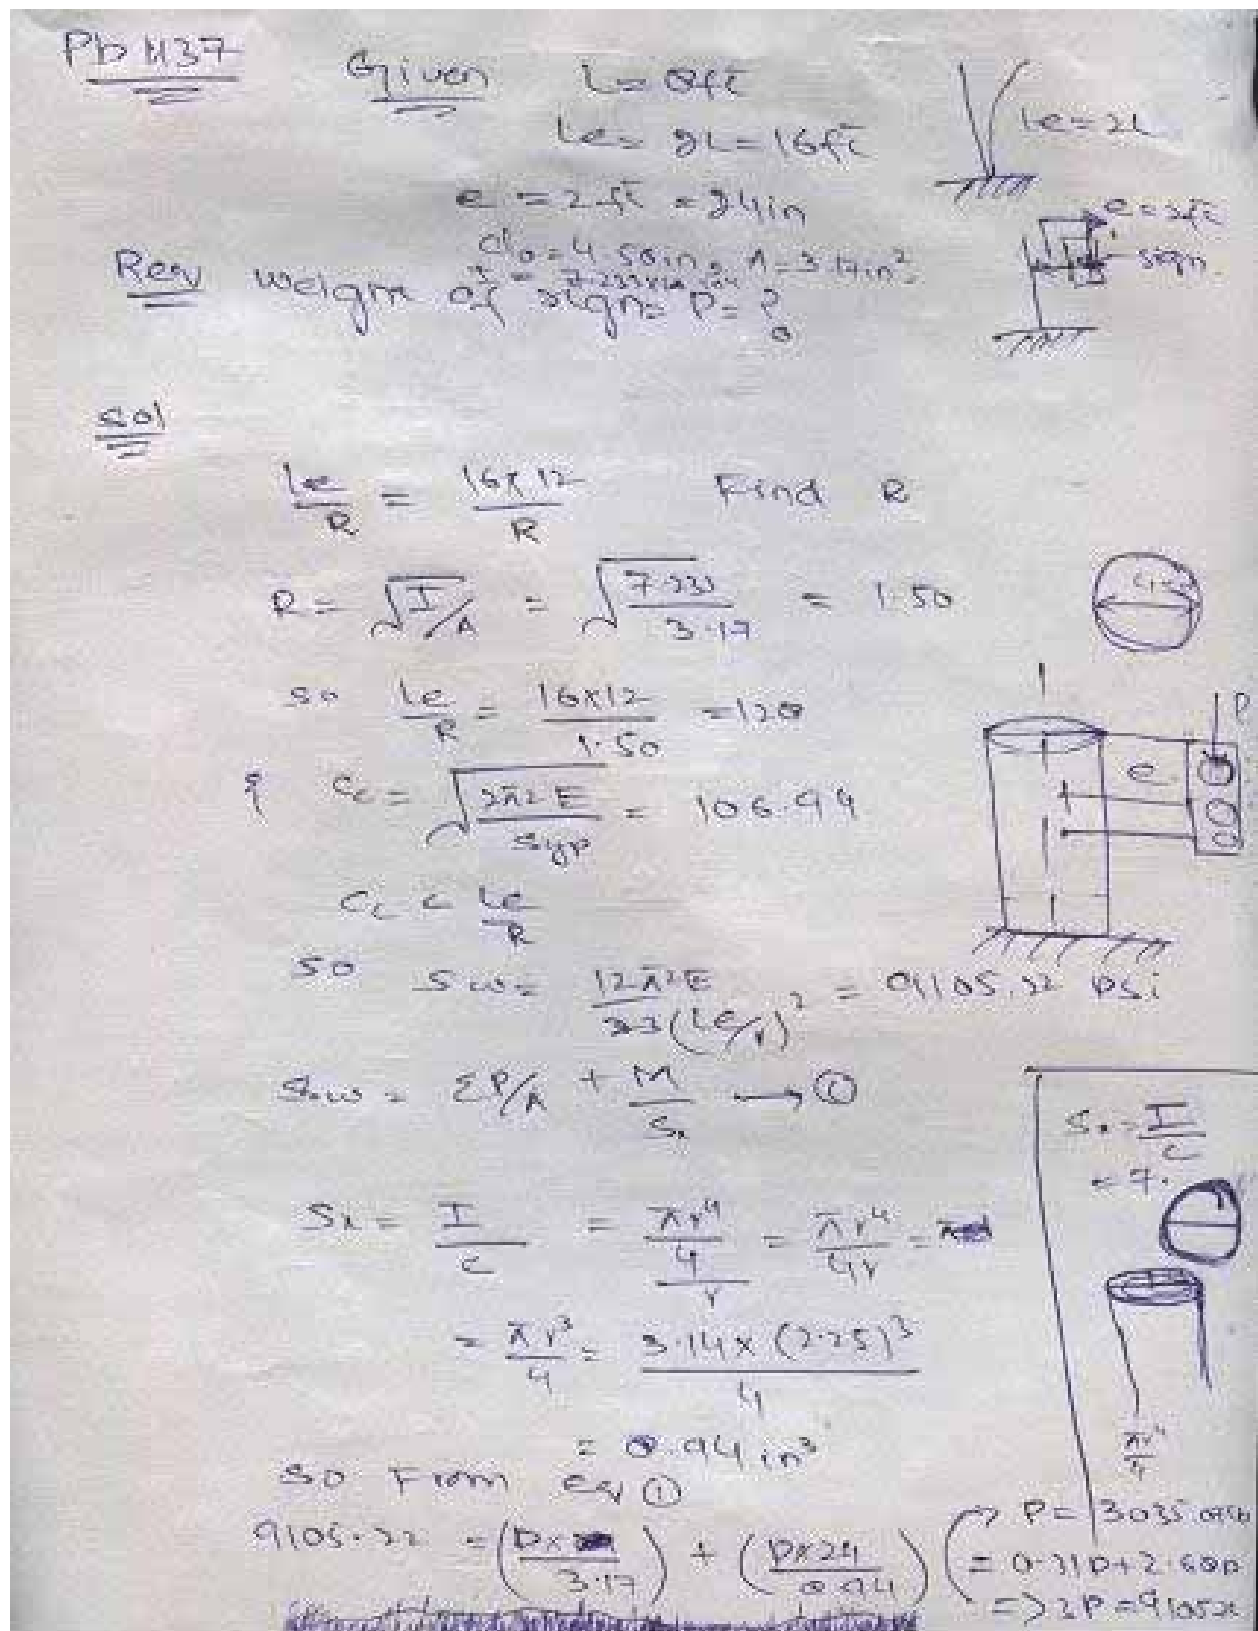 Pb 1137
Given L = 8ft
Le = 2L = 16ft
Le = 2L
e = 2ft = 24in
e = 2ft
do = 4.50in, A = 3.17in²
sign
I = 7.233
Req weight of sign = P = ?
Sol
Le/R = 16x12/R Find R
R = √I/A = √7.233/3.17 = 1.50
so Le/R = 16x12/1.50 = 128
P
e
& Cc = √2π²E/Syp = 106.94
Cc < Le/R
so Sw = 12π²E/23(Le/r)² = 9105.22 psi
Sw = ΣP/A + M/Sx → ①
Sx = I/c
= 7.
Sx = I/c = πr⁴/4/r = πr⁴/4r =
= πr³/4 = 3.14 x (2.25)³/4
πr⁴/4
= 8.94 in³
so From eq ①
9105.22 = (Px/3.17) + (Px24/8.94)
=> P = 3035.07lb
= 0.31P + 2.68P
=> 3P = 9105.22